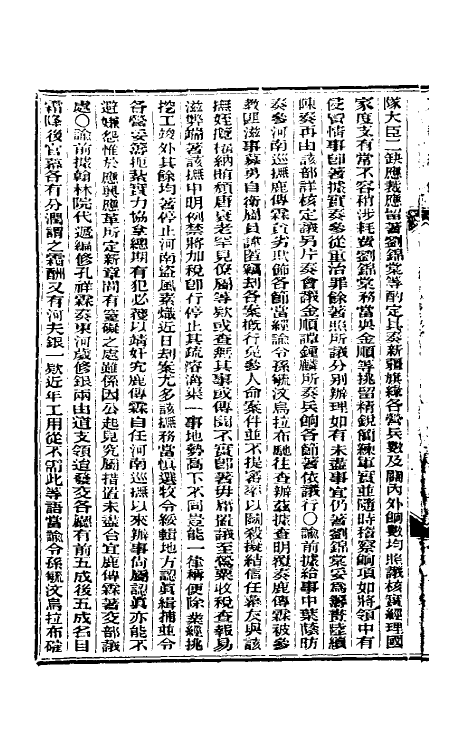 隊大臣二缺應裁應留著劉錦棠等酌定具奏新疆旗綠各營兵數及關內外餉數均照議核實經理國
家度支有常不容稍涉耗費劉錦棠務當與金順等挑留精銳簡練軍實並隨時稽察餉項如將領中有
侵冒情事卽著據實奏參從重治罪餘著照所議分別辦理如有未盡事宜仍著劉錦棠妥爲籌畫陸續
陳奏再由該部詳核定議另片奏會議金順譚鍾麟所奏兵餉各節著依議行○諭前據給事中葉蔭昉
奏參河南巡撫鹿傳霖貪劣欺飾各節當經諭令孫毓汶烏拉布馳往查辦茲據查明覆奏鹿傳霖被參
教匪滋事募勇自衞屬員諱匿竊刦各案檄行免參人命案件並不提審率以鬬殺擬結信任幕友與該
撫姪攬權納賄頹唐衰老罕見僚屬等欵或查無其事或傳聞不實卽著毋庸置議至糧粟收稅查報易
滋弊端著該撫申明例禁將加稅卽行停止其疏溶溝渠一事地勢高下不同豈能一律稱便除業經挑
挖工竣外其餘均著停止河南盜風素熾近日刦案尤多該撫務當慎選牧令綏輯地方認眞緝捕並令
各營妥籌扼紮實力協拿總期有犯必獲以靖奸宄鹿傳霖自任河南巡撫以來辦事尙屬認眞亦能不
避嫌怨惟於應興應革所定新章間有窒礙之處雖係因公起見究屬措置未盡合宜鹿傳霖著交部議
處○諭前據翰林院代遞編修孔祥霖奏東河歲修銀兩由道支領遞發交各廳有前五成後五成名目
霜降後官幕各有分潤謂之霜酬又有河夫銀一欵近年工用從不需此等語當諭令孫毓汶烏拉布確